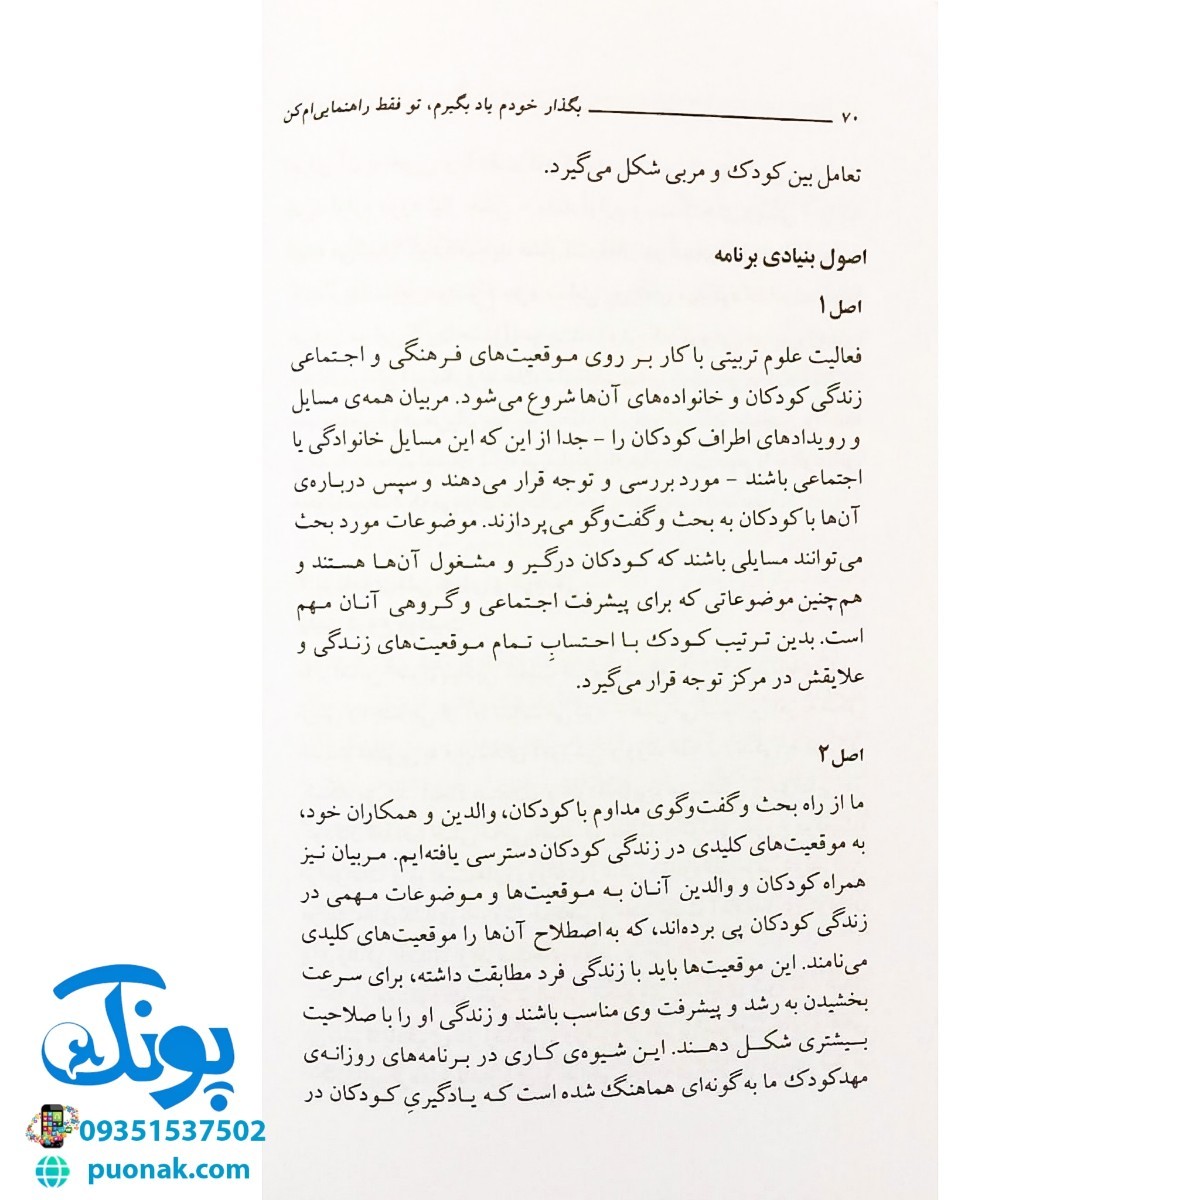 ۷۰ بگذار خودم یاد بگیرم، تو فقط راهنمایی‌ام کن
تعامل بین کودک و مربی شکل می‌گیرد.
اصول بنیادی برنامه
اصل ۱
فعالیت علوم تربیتی با کار بر روی موقعیت‌های فرهنگی و اجتماعی
زندگی کودکان و خانواده‌های آن‌ها شروع می‌شود. مربیان همه‌ی مسایل
و رویدادهای اطراف کودکان را – جدا از این که این مسایل خانوادگی یا
اجتماعی باشند – مورد بررسی و توجه قرار می‌دهند و سپس درباره‌ی
آن‌ها با کودکان به بحث و گفت‌وگو می‌پردازند. موضوعات مورد بحث
می‌توانند مسایلی باشند که کودکان درگیر و مشغول آن‌ها هستند و
هم‌چنین موضوعاتی که برای پیشرفت اجتماعی و گروهی آنان مهم
است. بدین ترتیب کودک با احتسابِ تمام موقعیت‌های زندگی و
علایقش در مرکز توجه قرار می‌گیرد.
اصل ۲
ما از راه بحث و گفت‌وگوی مداوم با کودکان، والدین و همکاران خود،
به موقعیت‌های کلیدی در زندگی کودکان دسترسی یافته‌ایم. مربیان نیز
همراه کودکان و والدین آنان به موقعیت‌ها و موضوعات مهمی در
زندگی کودکان پی برده‌اند، که به اصطلاح آن‌ها را موقعیت‌های کلیدی
می‌نامند. این موقعیت‌ها باید با زندگی فرد مطابقت داشته، برای سرعت
بخشیدن به رشد و پیشرفت وی مناسب باشند و زندگی او را با صلاحیت
بیشتری شکل دهند. این شیوه‌ی کاری در برنامه‌های روزانه‌ی
مهدکودک ما به گونه‌ای هماهنگ شده است که یادگیریِ کودکان در
پونک
09351537502
puonak.com